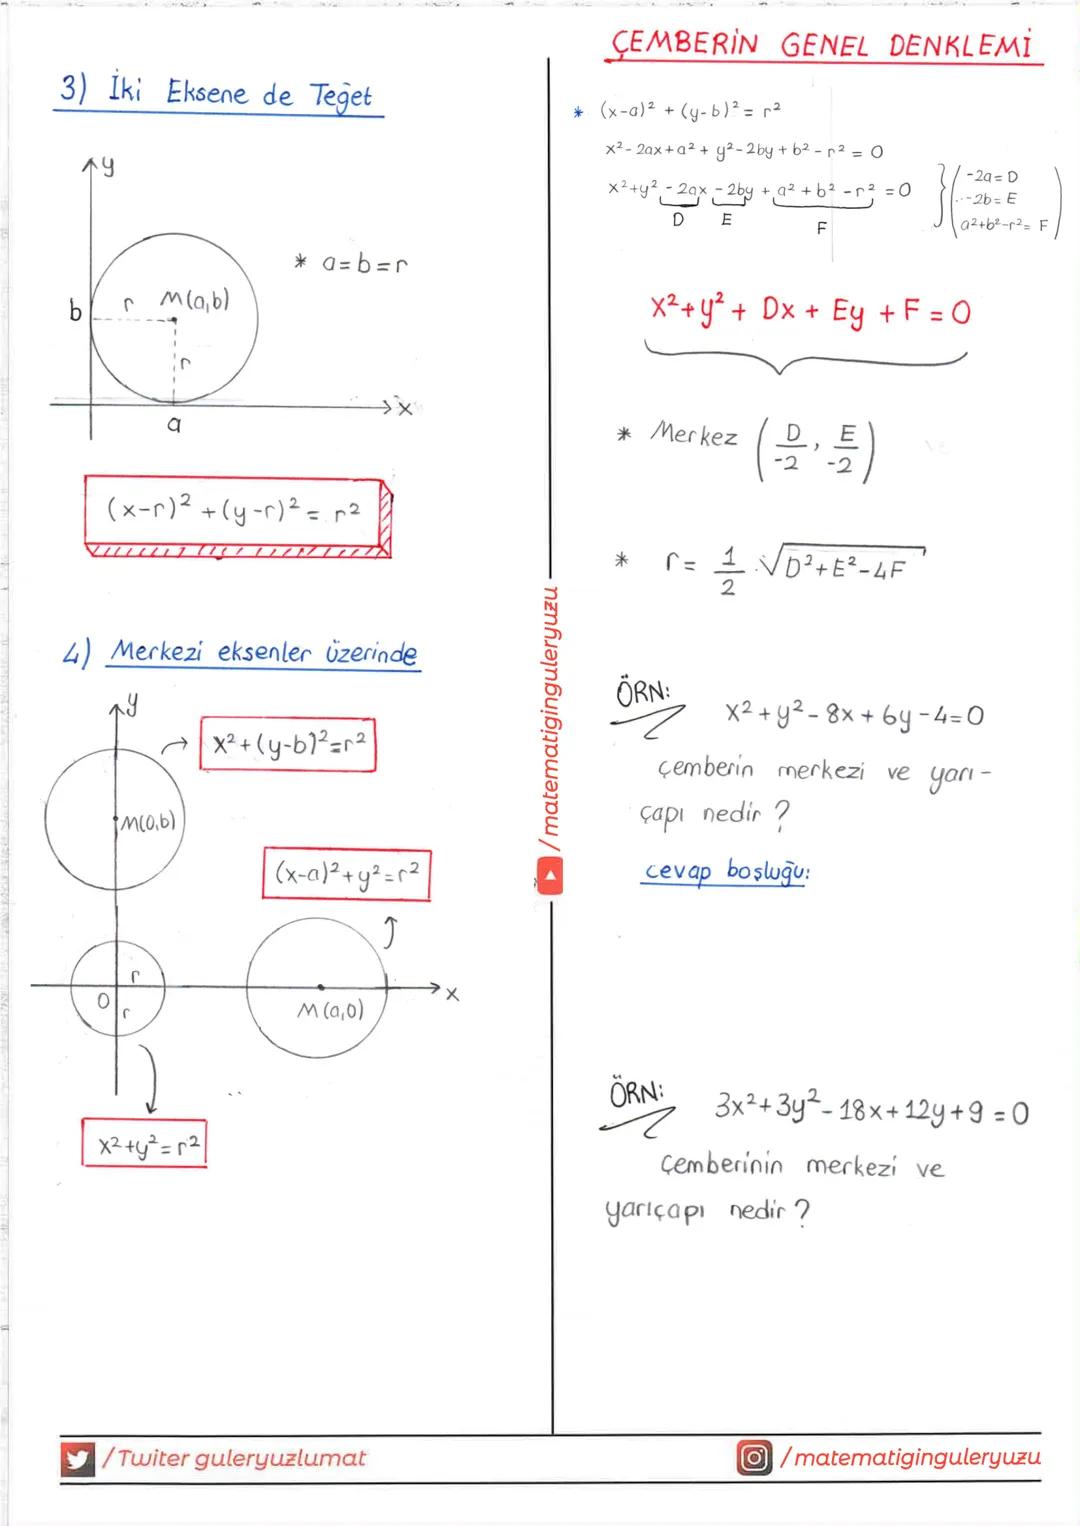 3) İki Eksene de Teğet
y
* a=b=r
b
r
M(a,b)
r
a
x
(x-r)² + (y-r)² = r²
4) Merkezi eksenler üzerinde
y
x²+(y-b)²=r²
M(0,b)
(x-a)²+y²=r²
r
O
r
M(a,0)
x
x²+y²=r²
/matematiginguleryuzu
ÇEMBERİN GENEL DENKLEMİ
* (x-a)² + (y-b)² = r²
x² - 2ax + a² + y² - 2by + b² - r² = 0
x²+y² - 2ax - 2by + a² + b² - r² = 0
D E F
-2a = D
-2b = E
a²+b²-r² = F
x²+y² + Dx + Ey + F = 0
* Merkez (D/-2, E/-2)
* r = 1/2 · √D²+E²-4F
ÖRN:
x² + y² - 8x + 6y - 4 = 0
çemberin merkezi ve yarı-
çapı nedir ?
cevap boşluğu:
ÖRN:
3x² + 3y² - 18x + 12y + 9 = 0
Çemberinin merkezi ve
yarıçapı nedir ?
/Twiter guleryuzlumat
/matematiginguleryuzu